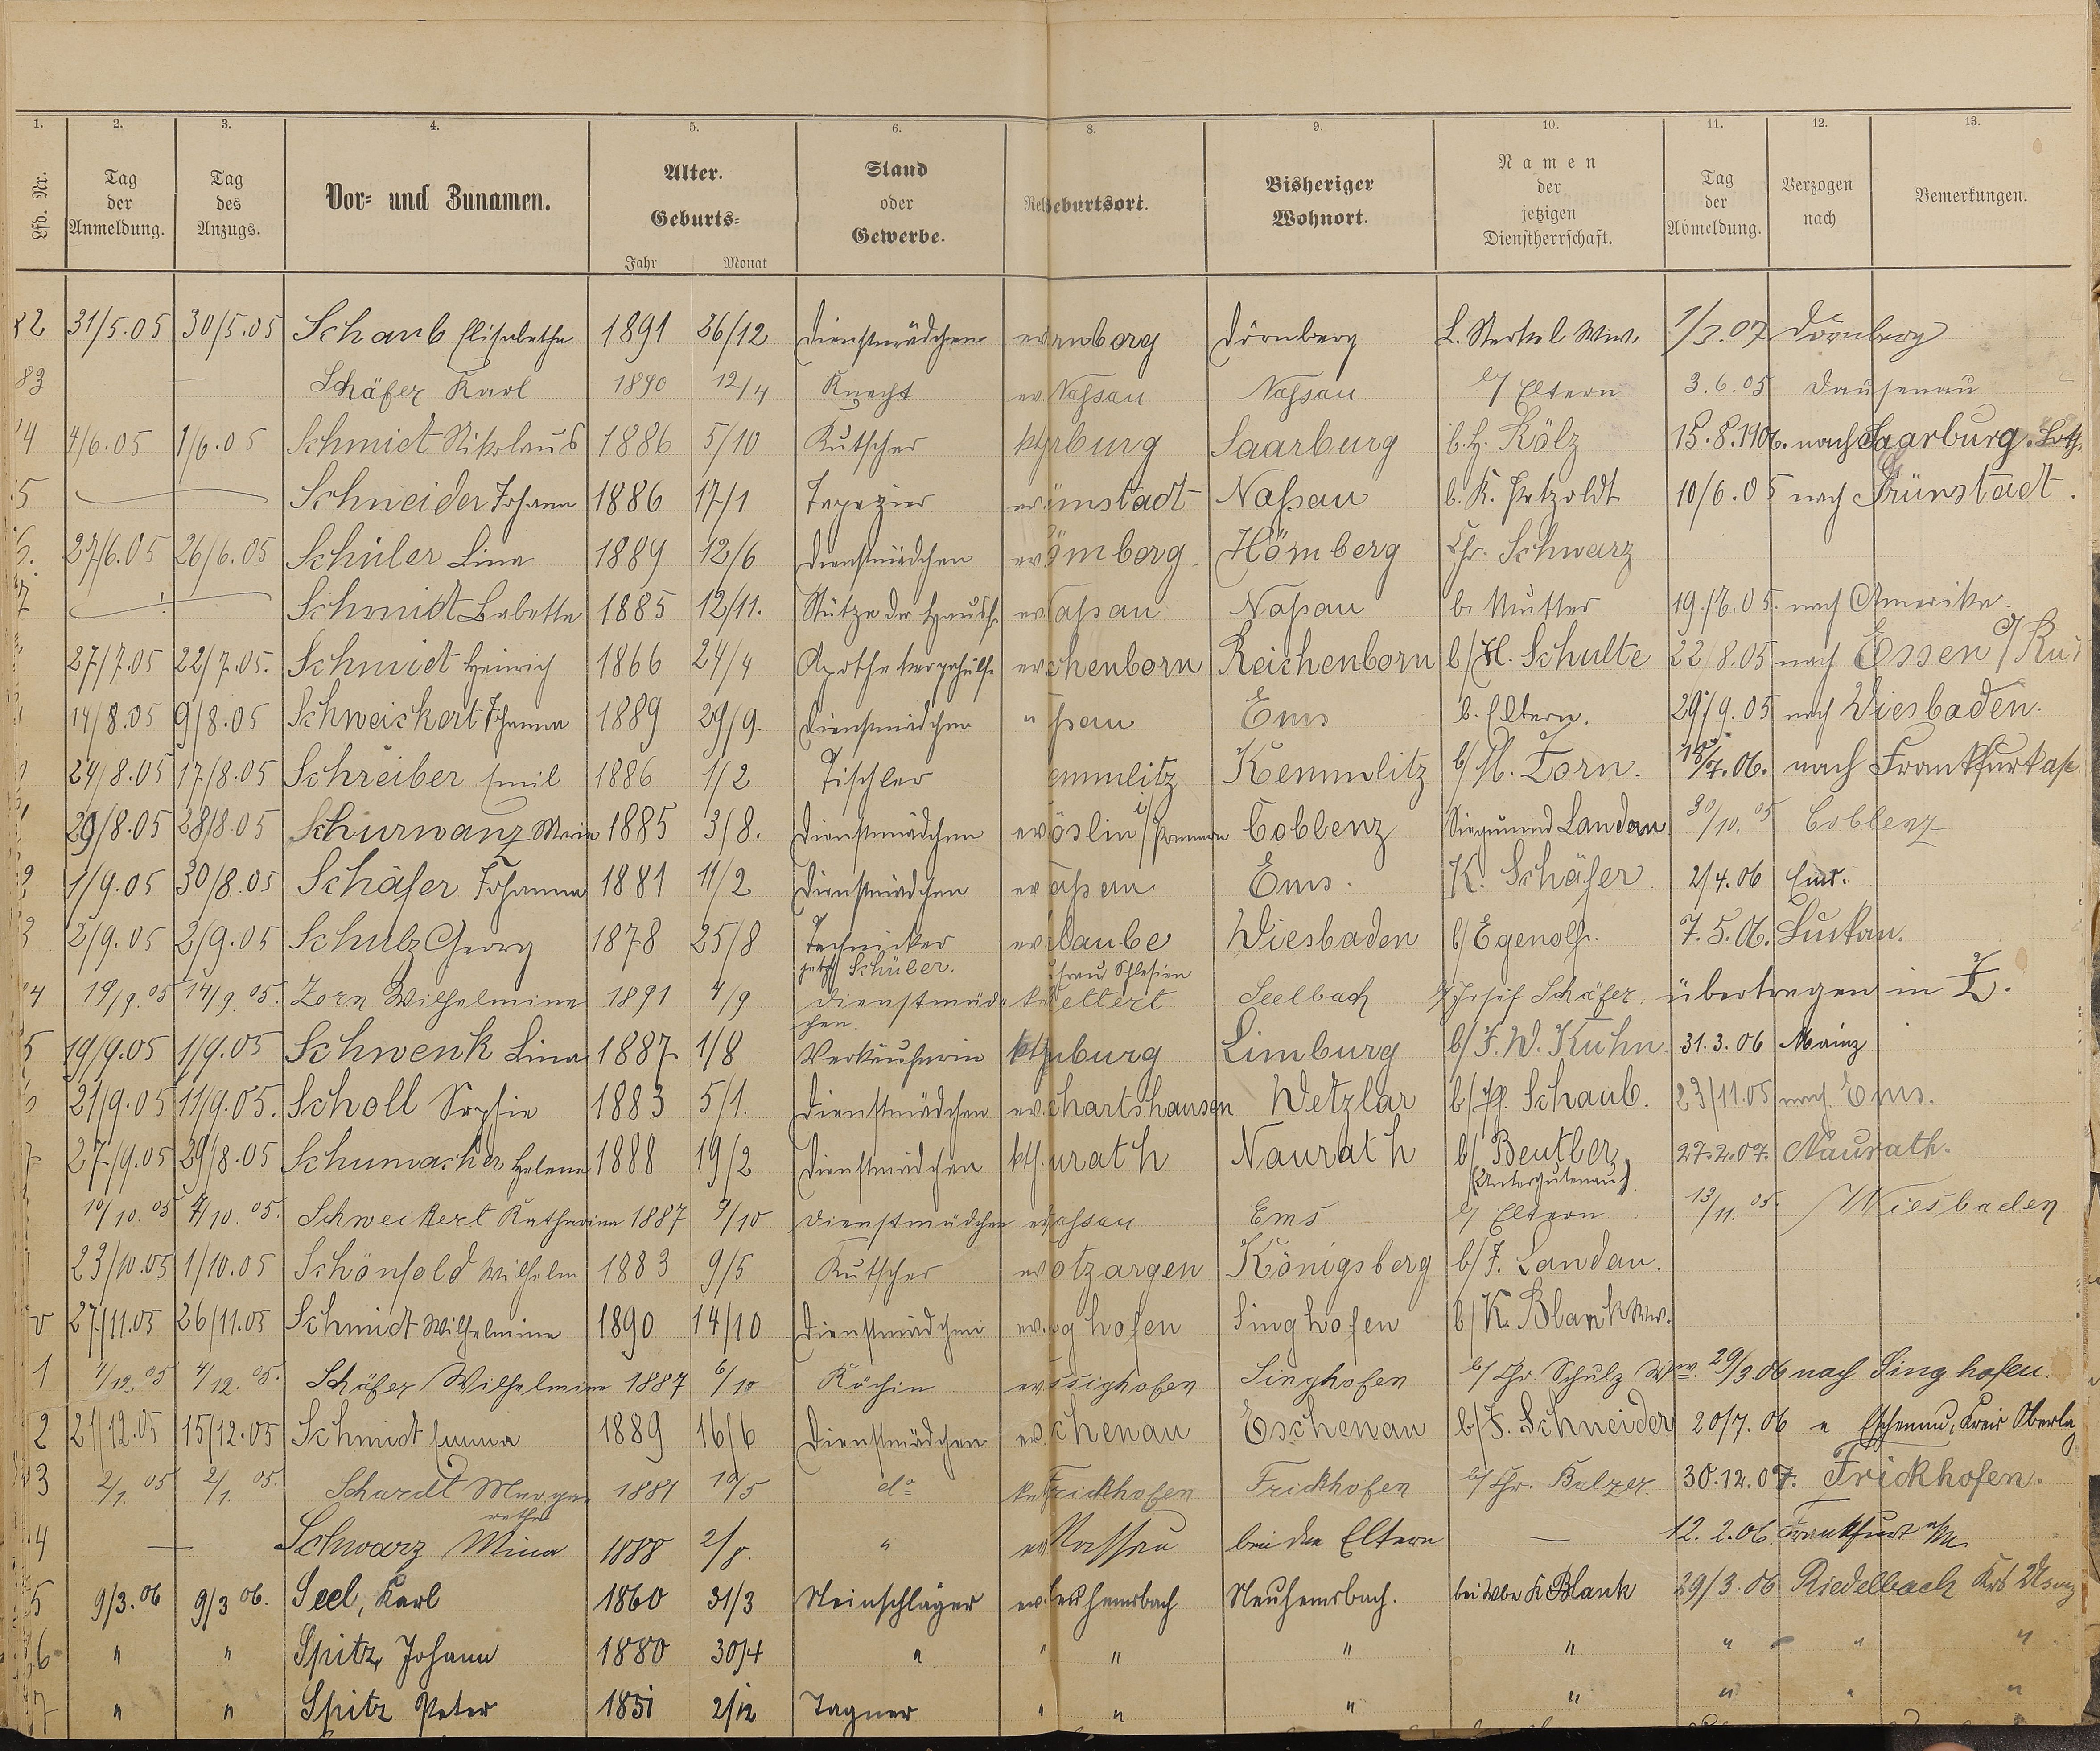 1. 2. 3. 4. 5. 6. 8. 9. 10. 11. 12. 13.
Lfd. Nr. Tag der Anmeldung. Tag des Anzugs. Vor- und Zunamen. Alter. Geburts- Jahr Monat Stand oder Gewerbe. Rel eburtsort. Bisheriger Wohnort. Namen der jetzigen Dienstherrschaft. Tag der Abmeldung. Verzogen nach Bemerkungen.
82 31/5.05 30/5.05 Schaub Elisabethe 1891 26/12 Dienstmädchen ev rnberg Dörnberg L. Sterkel Wwe. 1/3.07 Dörnberg
83 — Schäfer Karl 1890 12/4 Knecht ev. Nassau Nassau b/ Eltern 3.6.05 Dausenau
4 4/6.05 1/6.05 Schmidt Nikolaus 1886 5/10 Kutscher kth rburg Saarburg b. H. Kölz 15.8.1906. nach Saarburg. Loth.
5 — Schneider Johann 1886 17/1 Tapezier ev ünstadt Naßau b. K. Petzoldt 10/6.05 nach Grünstadt.
6. 27/6.05 26/6.05 Schüler Lina 1889 12/6 Dienstmädchen ev ömberg. Hömberg Chr. Schwarz
7 — Schmidt Babette 1885 12/11. Stütze der Hausfr. ev. aßau Naßau b. Mutter 19./6.05. nach Amerika.
27/7.05 22/7.05. Schmidt Heinrich 1866 24/4 Apothekergehülfe ev chenborn Reichenborn b/ H. Schulte 22/8.05 nach Essen a/ Rur
14/8.05 9/8.05 Schweickert Johanna 1889 29/9. Dienstmädchen " ßau Ems b. Eltern. 29/9.05 nach Wiesbaden.
24/8.05 17/8.05 Schreiber Emil 1886 1/2 Tischler emmlitz Kemmlitz b/ M. Zorn. 15/7.06. nach Frankfurt
29/8.05 28/8.05 Schurwanz Maria 1885 3/8. Dienstmädchen ev öslin i/ Pommern Coblenz Siegmund Landau 30/10.05 Coblenz
1/9.05 30/8.05 Schäfer Johanna 1881 11/2 Dienstmädchen ev aßau Ems. K. Schäfer 2/4.06 Ems.
3 2/9.05 2/9.05 Schulz Georg 1878 25/8 Techniker ev. laube Wiesbaden b/ Egenolf. 7.5.06. Luckau.
jetzt Schüler. Schlesien
4 19/9.05 14/9.05. Zorn Wilhelmine 1891 4/9 Dienstmäd- ettert Seelbach b/ Josef Schäfer. übertragen in Z.
chen.
5 19/9.05 1/9.05 Schwenk Lina 1887 1/8 Verkäuferin kth burg Limburg b/ J. W. Kuhn. 31.3.06 Mainz
21/9.05 11/9.05. Scholl Sophie 1883 5/1. Dienstmädchen ev. chartshausen Wetzlar b/ Schaub. 23/11.05 nach Ems.
7 27/9.05 29/8.05 Schumacher Helene 1888 19/2 Dienstmädchen kth. urath Naurath b/ Beutler 27.2.07. Naurath.
(Untergutenau)
10/10.05 4/10.05. Schweikert Katharina 1887 9/10 Dienstmädchen ev assau Ems b/ Eltern 13/11.05. Wiesbaden
23/10.05 1/10.05 Schönfeld Wilhelm 1883 9/5 Kutscher ev otzargen Königsberg b/ J. Landau.
27/11.05 26/11.05 Schmidt Wilhelmine 1890 14/10 Dienstmädchen ev. ghofen Singhofen b/ K. Blank Wwe.
1 4/12.05 4/12.05. Schäfer Wilhelmine 1887 6/10 Köchin ev. ssighofen Singhofen b/ Chr. Schulz Ww. 29/3.06 nach Singhofen.
2 21/12.05 15/12.05 Schmidt Emma 1889 16/6 Dienstmädchen ev. chenau Eschenau b/ J. Schneider 20/7.06 n Eschenau, Kreis Oberla
3 2/1.05 2/1.05. Schardt Marga- 1881 10/5 do Frickhofen Frickhofen b/ Chr. Balzer. 30.12.07. Frickhofen.
rethe
4 — Schwarz Mina 1888 2/8. " ev Nassau bei den Eltern — 12.2.06. Frankfurt a/M.
5 9/3.06 9/3 06. Seel, Karl 1860 31/3 Steinschläger ev. euhemsbach Neuhemsbach. bei Wwe K Blank 29/3.06 Riedelbach Krs Using
6 " " Spitz, Johann 1880 30/4 " " " " " " " "
7 " " Spitz Peter 1851 2/12 Tagner " " " " " " "